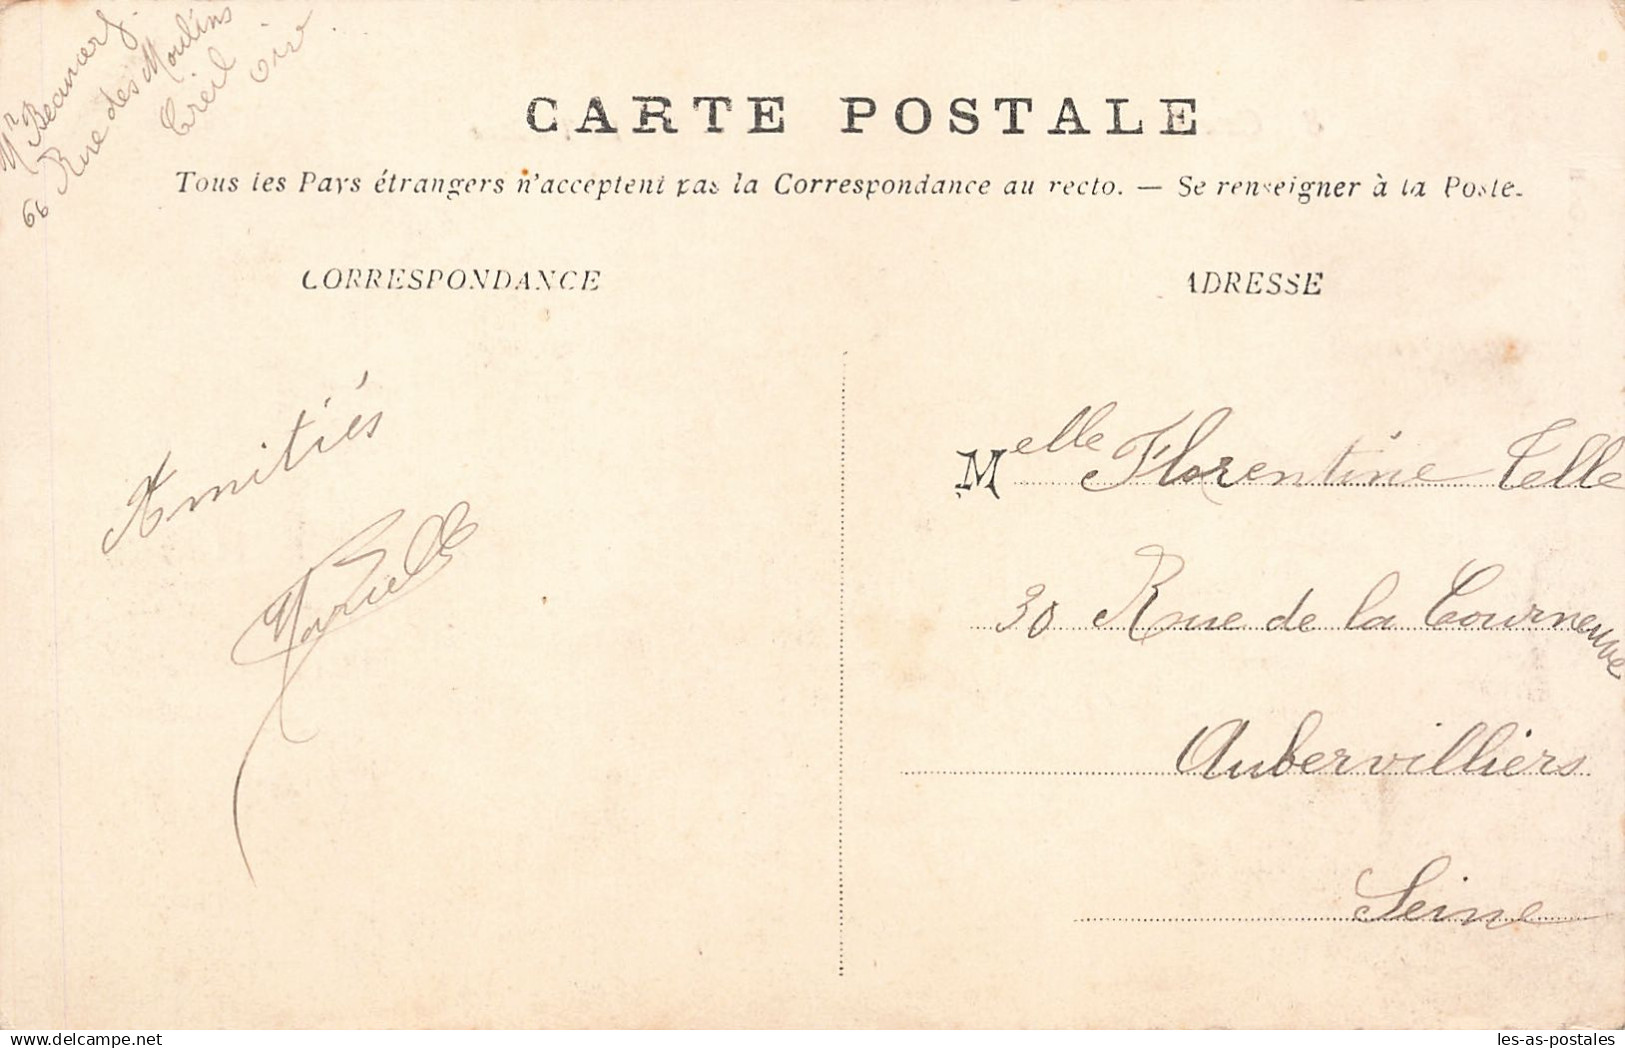 66 Rue des Moulins
Creil Oise
CARTE POSTALE
Tous les Pays étrangers n'acceptent pas la Correspondance au recto. — Se renseigner à la Poste.
CORRESPONDANCE
ADRESSE
Amitiés
Melle Florentine Telle
30 Rue de la Courneuve
Aubervilliers
Seine
les-as-postales